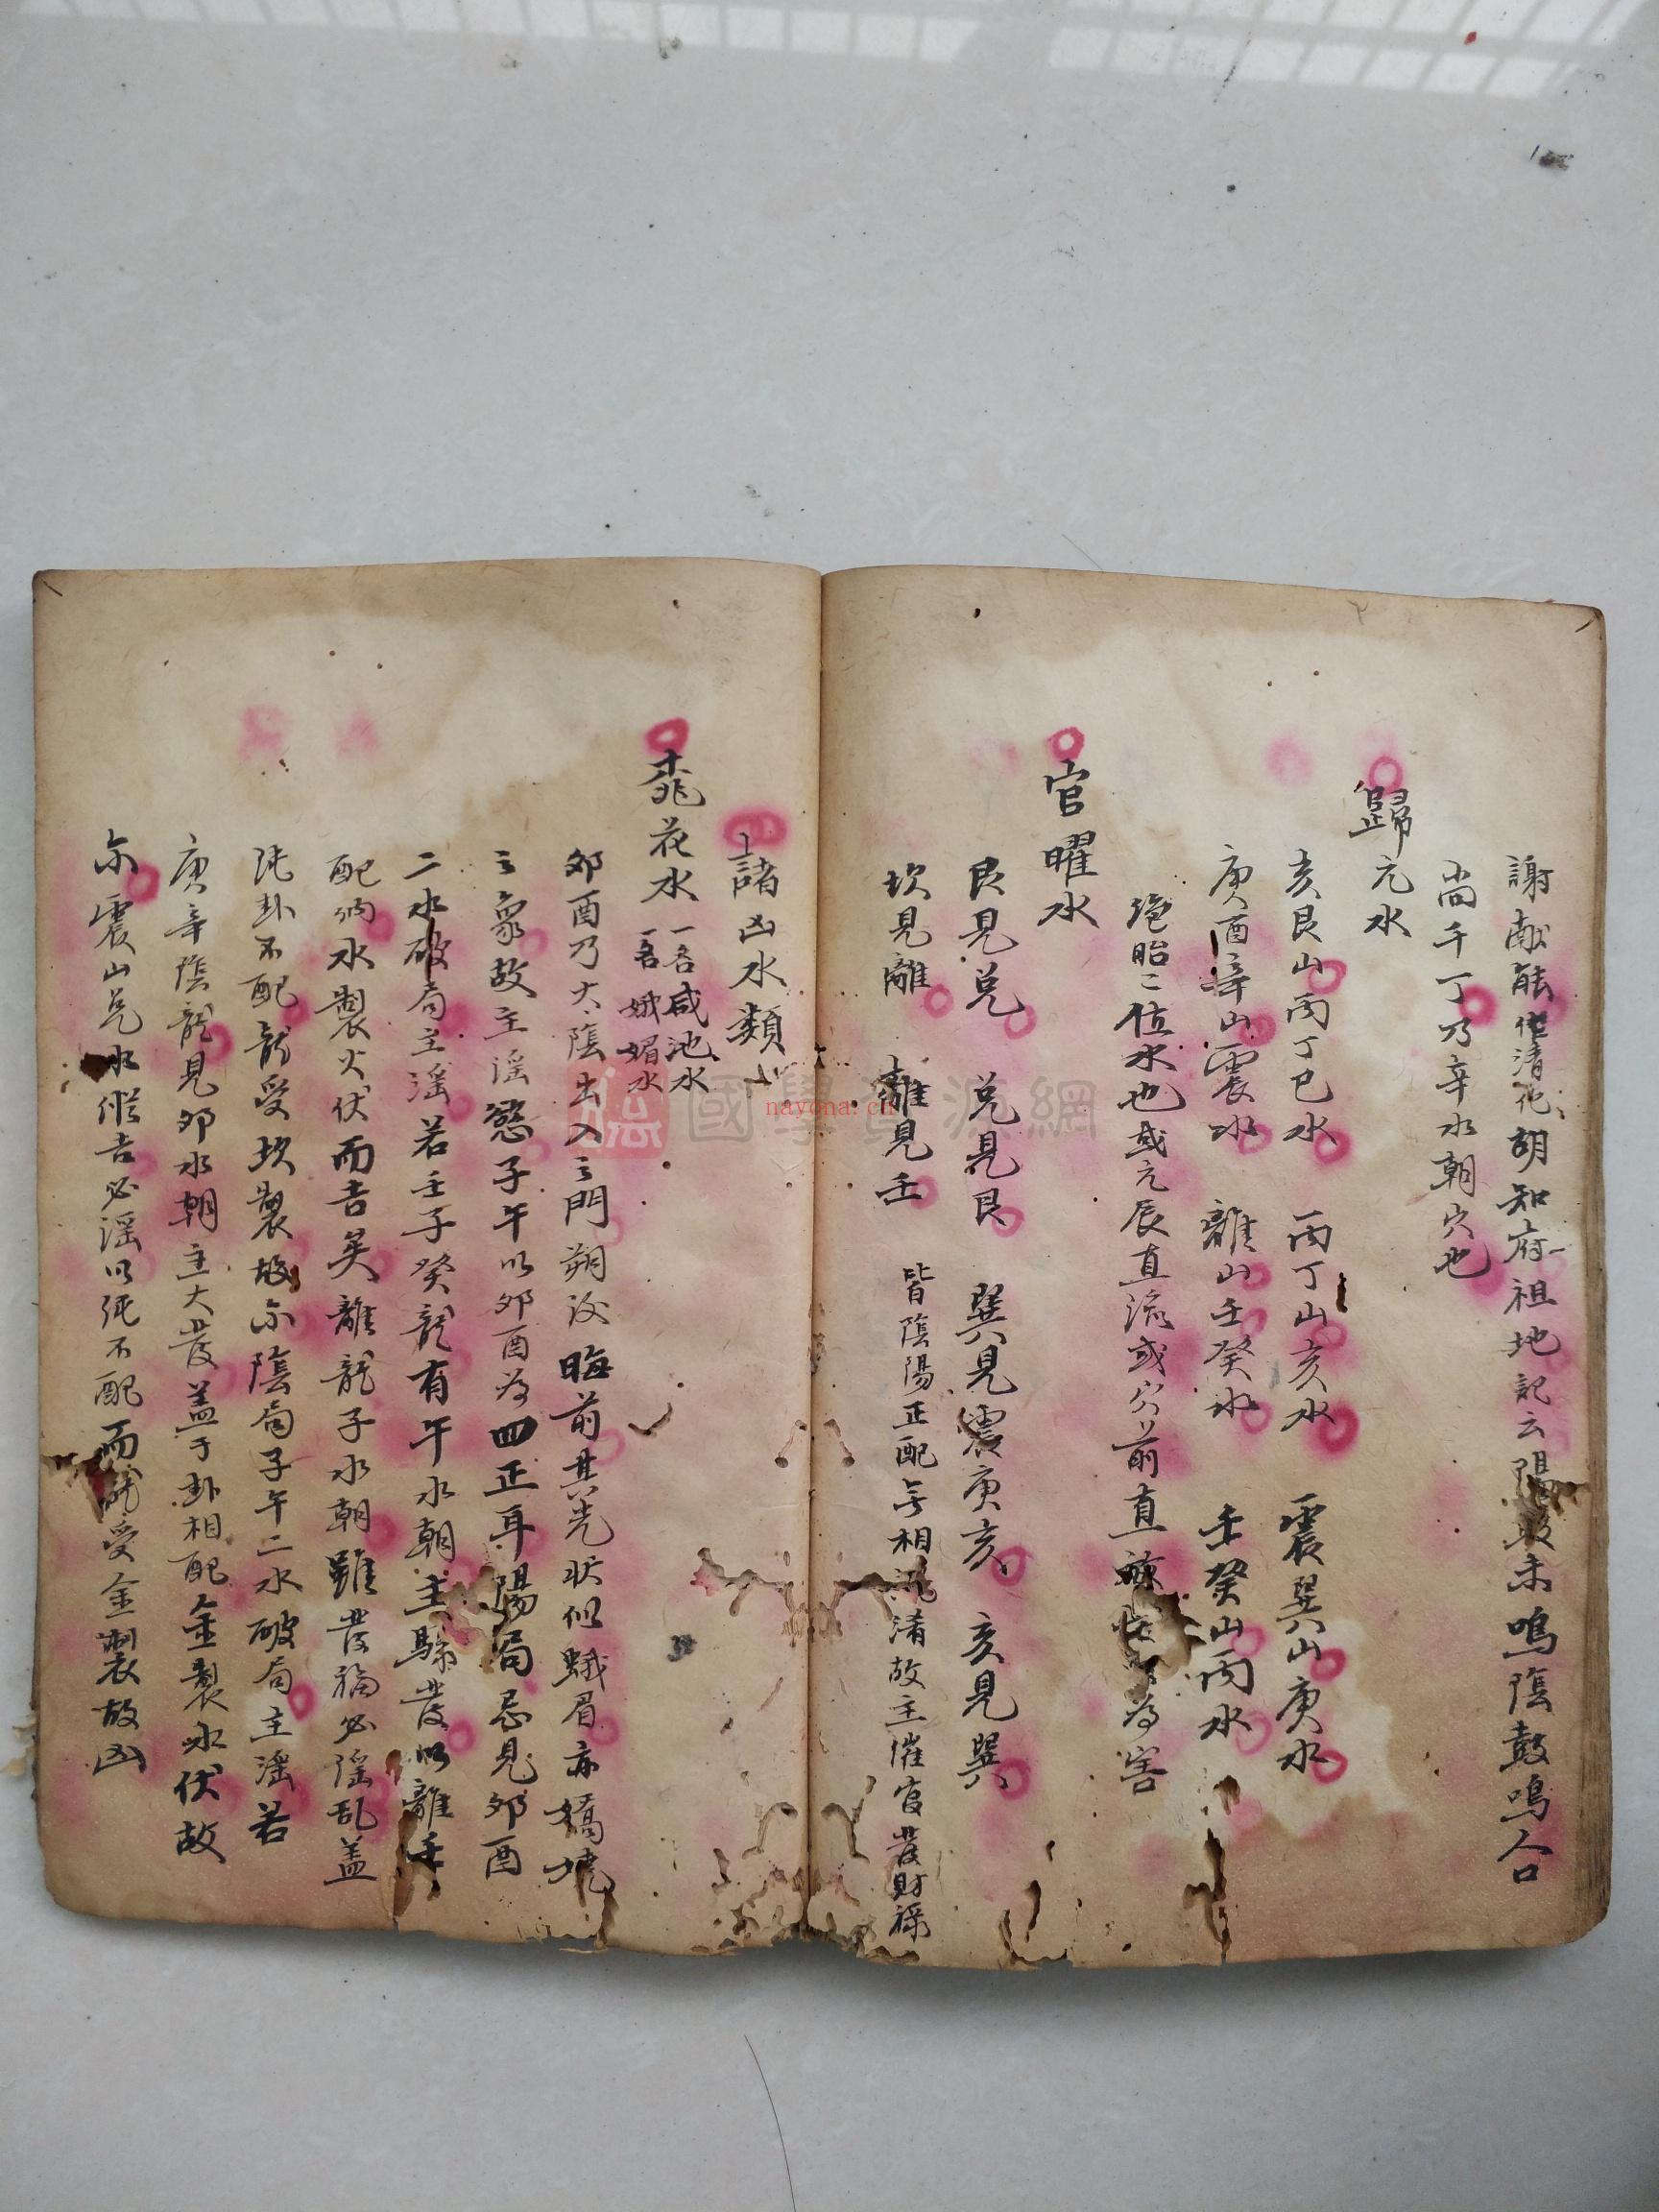 謝献能作清化胡知府祖地記云陽山未鳴陰鼓鳴人口
尚千丁乃辛水朝穴也
歸元水
亥艮山丙丁巳水 丙丁山亥水 震巽山庚水
庚酉辛山震水 離山壬癸水 壬癸山丙水
絕胎二位水也或元辰直流或穴前直 為害
官曜水
艮見兌 兌見艮 巽見震庚亥 亥見巽
坎見離 離見壬 皆陰陽正配無相混淆故主催官發財祿
諸凶水類
桃花水 一名咸池水
一名娥媚水
夘酉乃大陰出入之門朔後晦前其光狀似蛾眉亦嬌嬈
之象故主淫慾子午以夘酉為四正耳陽局忌見夘酉
二水破局主淫若壬子癸龍有午水朝主驟發以離壬
配納水製火伏而吉矣離龍子水朝雖發福必淫乱盖
純卦不配龍受坎製故尔陰局子午二水破局主淫若
庚辛陰龍見夘水朝主大發盖于卦相配金製水伏故
尔震山兌水雖吉必淫以純不配而龍受金製故凶
國學資源網
nayona.cn